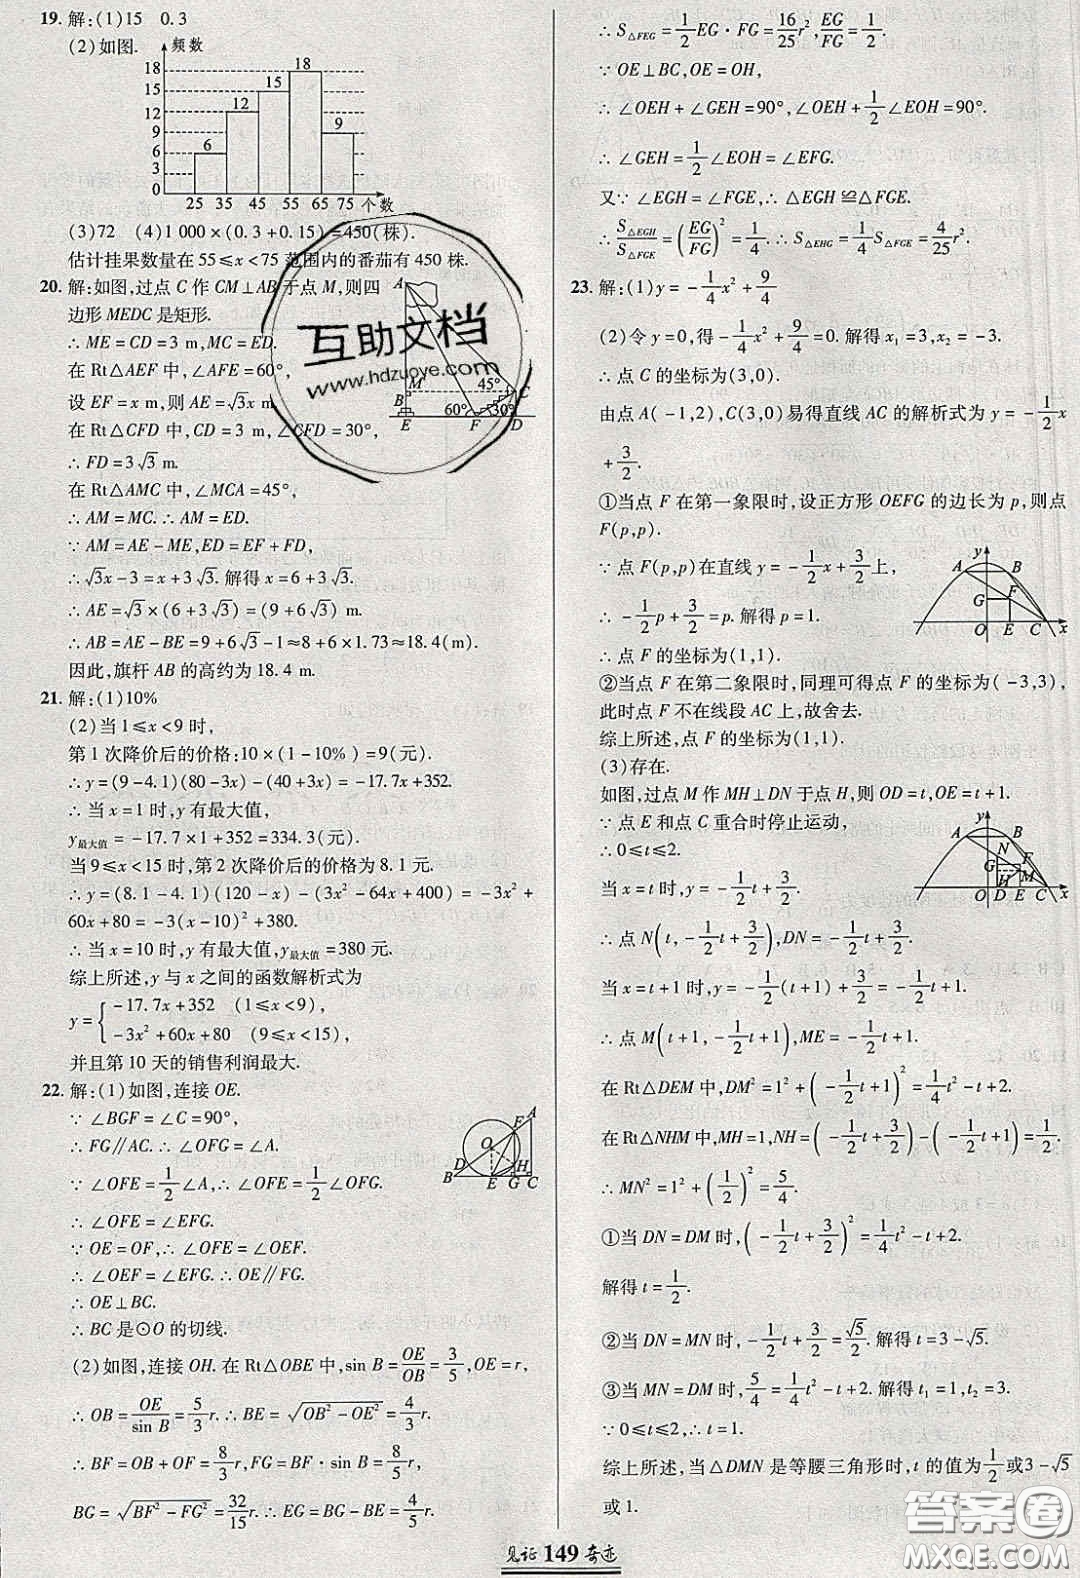 19. 解:(1)15　0.3
(2)如图.
频数
18
15
12
9
6
3
0
6
12
15
18
9
25 35 45 55 65 75 个数
(3)72　(4)1 000×(0.3+0.15)=450(株).
估计挂果数量在 55≤x<75 范围内的番茄有 450 株.
20. 解:如图,过点 C 作 CM⊥AB 于点 M,则四
边形 MEDC 是矩形.
∴ME=CD=3 m,MC=ED.
在 Rt△AEF 中,∠AFE=60°,
设 EF=x m,则 AE=√3x m.
在 Rt△CFD 中,CD=3 m,∠CFD=30°,
∴FD=3√3 m.
在 Rt△AMC 中,∠MCA=45°,
∴AM=MC.∴AM=ED.
∵AM=AE-ME,ED=EF+FD,
∴√3x-3=x+3√3.解得 x=6+3√3.
∴AE=√3×(6+3√3)=(9+6√3) m.
∴AB=AE-BE=9+6√3-1≈8+6×1.73≈18.4(m).
因此,旗杆 AB 的高约为 18.4 m.
A
M
B
E
45°
C
60°
30°
F
D
21. 解:(1)10%
(2)当 1≤x<9 时,
第 1 次降价后的价格:10×(1-10%)=9(元).
∴y=(9-4.1)(80-3x)-(40+3x)=-17.7x+352.
∴当 x=1 时,y 有最大值,
y最大值=-17.7×1+352=334.3(元).
当 9≤x<15 时,第 2 次降价后的价格为 8.1 元.
∴y=(8.1-4.1)(120-x)-(3x²-64x+400)=-3x²+
60x+80=-3(x-10)²+380.
∴当 x=10 时,y 有最大值,y最大值=380 元.
综上所述,y 与 x 之间的函数解析式为
y={-17.7x+352 (1≤x<9),
-3x²+60x+80 (9≤x<15),
并且第 10 天的销售利润最大.
22. 解:(1)如图,连接 OE.
∵∠BGF=∠C=90°,
∴FG∥AC.∴∠OFG=∠A.
∵∠OFE=1/2∠A,∴∠OFE=1/2∠OFG.
∴∠OFE=∠EFG.
∵OE=OF,∴∠OFE=∠OEF.
∴∠OEF=∠EFG.∴OE∥FG.
∴OE⊥BC.
∴BC 是⊙O 的切线.
A
F
O
D
H
B
E G C
(2)如图,连接 OH.在 Rt△OBE 中,sin B=OE/OB=3/5,OE=r,
∴OB=OE/sin B=5/3r.∴BE=√(OB²-OE²)=4/3r.
∴BF=OB+OF=8/3r,∴FG=BF·sin B=8/5r,
BG=√(BF²-FG²)=32/15r.∴EG=BG-BE=4/5r.
∴S△FEG=1/2EG·FG=16/25r²,EG/FG=1/2.
∵OE⊥BC,OE=OH,
∴∠OEH+∠GEH=90°,∠OEH+1/2∠EOH=90°.
∴∠GEH=1/2∠EOH=∠EFG.
又∵∠EGH=∠FGE,∴△EGH∽△FGE.
∴S△EGH/S△FGE=(EG/FG)²=1/4.∴S△EHG=1/4S△FGE=4/25r².
23. 解:(1)y=-1/4x²+9/4
(2)令 y=0,得-1/4x²+9/4=0.解得 x₁=3,x₂=-3.
∴点 C 的坐标为(3,0).
由点 A(-1,2),C(3,0)易得直线 AC 的解析式为 y=-1/2x
+3/2.
①当点 F 在第一象限时,设正方形 OEFG 的边长为 p,则点
F(p,p).
∵点 F(p,p)在直线 y=-1/2x+3/2上,
∴-1/2p+3/2=p.解得 p=1.
∴点 F 的坐标为(1,1).
y
A
B
G
F
O E C x
②当点 F 在第二象限时,同理可得点 F 的坐标为(-3,3),
此时点 F 不在线段 AC 上,故舍去.
综上所述,点 F 的坐标为(1,1).
(3)存在.
如图,过点 M 作 MH⊥DN 于点 H,则 OD=t,OE=t+1.
∵点 E 和点 C 重合时停止运动,
∴0≤t≤2.
当 x=t 时,y=-1/2t+3/2.
y
A
B
N
G
F
H
M
O D E C x
∴点 N(t,-1/2t+3/2),DN=-1/2t+3/2.
当 x=t+1 时,y=-1/2(t+1)+3/2=-1/2t+1.
∴点 M(t+1,-1/2t+1),ME=-1/2t+1.
在 Rt△DEM 中,DM²=1²+(-1/2t+1)²=1/4t²-t+2.
在 Rt△NHM 中,MH=1,NH=(-1/2t+3/2)-(-1/2t+1)=1/2.
∴MN²=1²+(1/2)²=5/4.
①当 DN=DM 时,(-1/2t+3/2)²=1/4t²-t+2.
解得 t=1/2.
②当 DN=MN 时,-1/2t+3/2=√5/2.解得 t=3-√5.
③当 MN=DM 时,5/4=1/4t²-t+2.解得 t₁=1,t₂=3.
∵0≤t≤2,∴t=1.
综上所述,当△DMN 是等腰三角形时,t 的值为1/2或3-√5
或 1.
见证 149 奇迹
互助文档
www.hdzuoye.com
答案圈
MXQE.COM